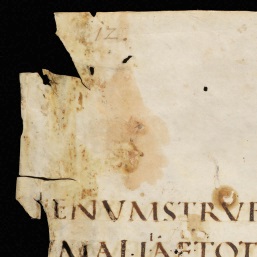 12
ENVMSTRVE
MALIAETOT